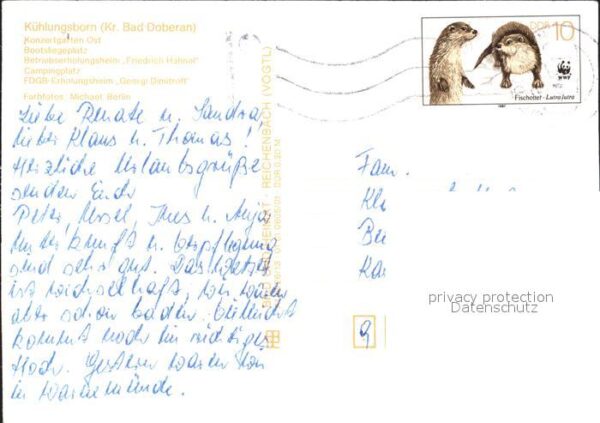 Kühlungsborn (Kr. Bad Doberan)
Konzertgarten Ost
Bootsliegeplatz
Betriebserholungsheim „Friedrich Hähnel"
Campingplatz
FDGB-Erholungsheim „Georgi Dimitroff"
Farbfotos: Michael Berlin
Liebe Renate u. Sandra,
lieber Klaus u. Thomas!
Herzliche Urlaubsgrüße
senden Euch
Peter, Ursel, Ines u. Anja
Unterkunft u. Verpflegung
sind sehr gut. Das Wetter
ist wechselhaft, wir waren
aber schon baden. Vielleicht
kommt noch ein richtiges
Hoch. Gestern waren wir
in Warnemünde.
REICHENBACH (VOGTL)
DDR 10
WWF
Fischotter - Lutra lutra
1987
Fam.
Kl
Be
Ka
privacy protection
Datenschutz
9